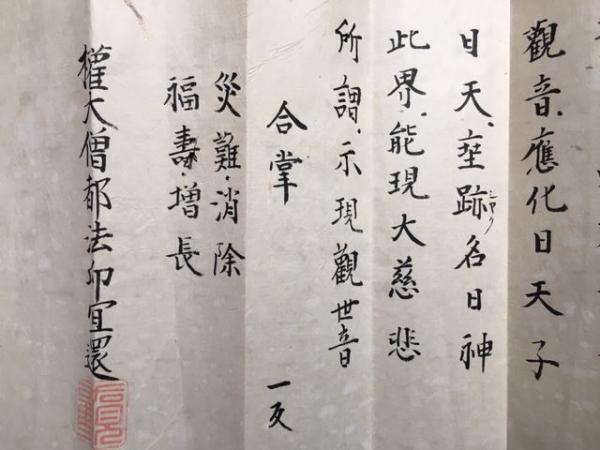 觀音應化日天子
日天垂跡名日神
シヤク
此界能現大慈悲
所謂示現觀世音
合掌 一反
災難消除
福壽增長
權大僧都法印宜還